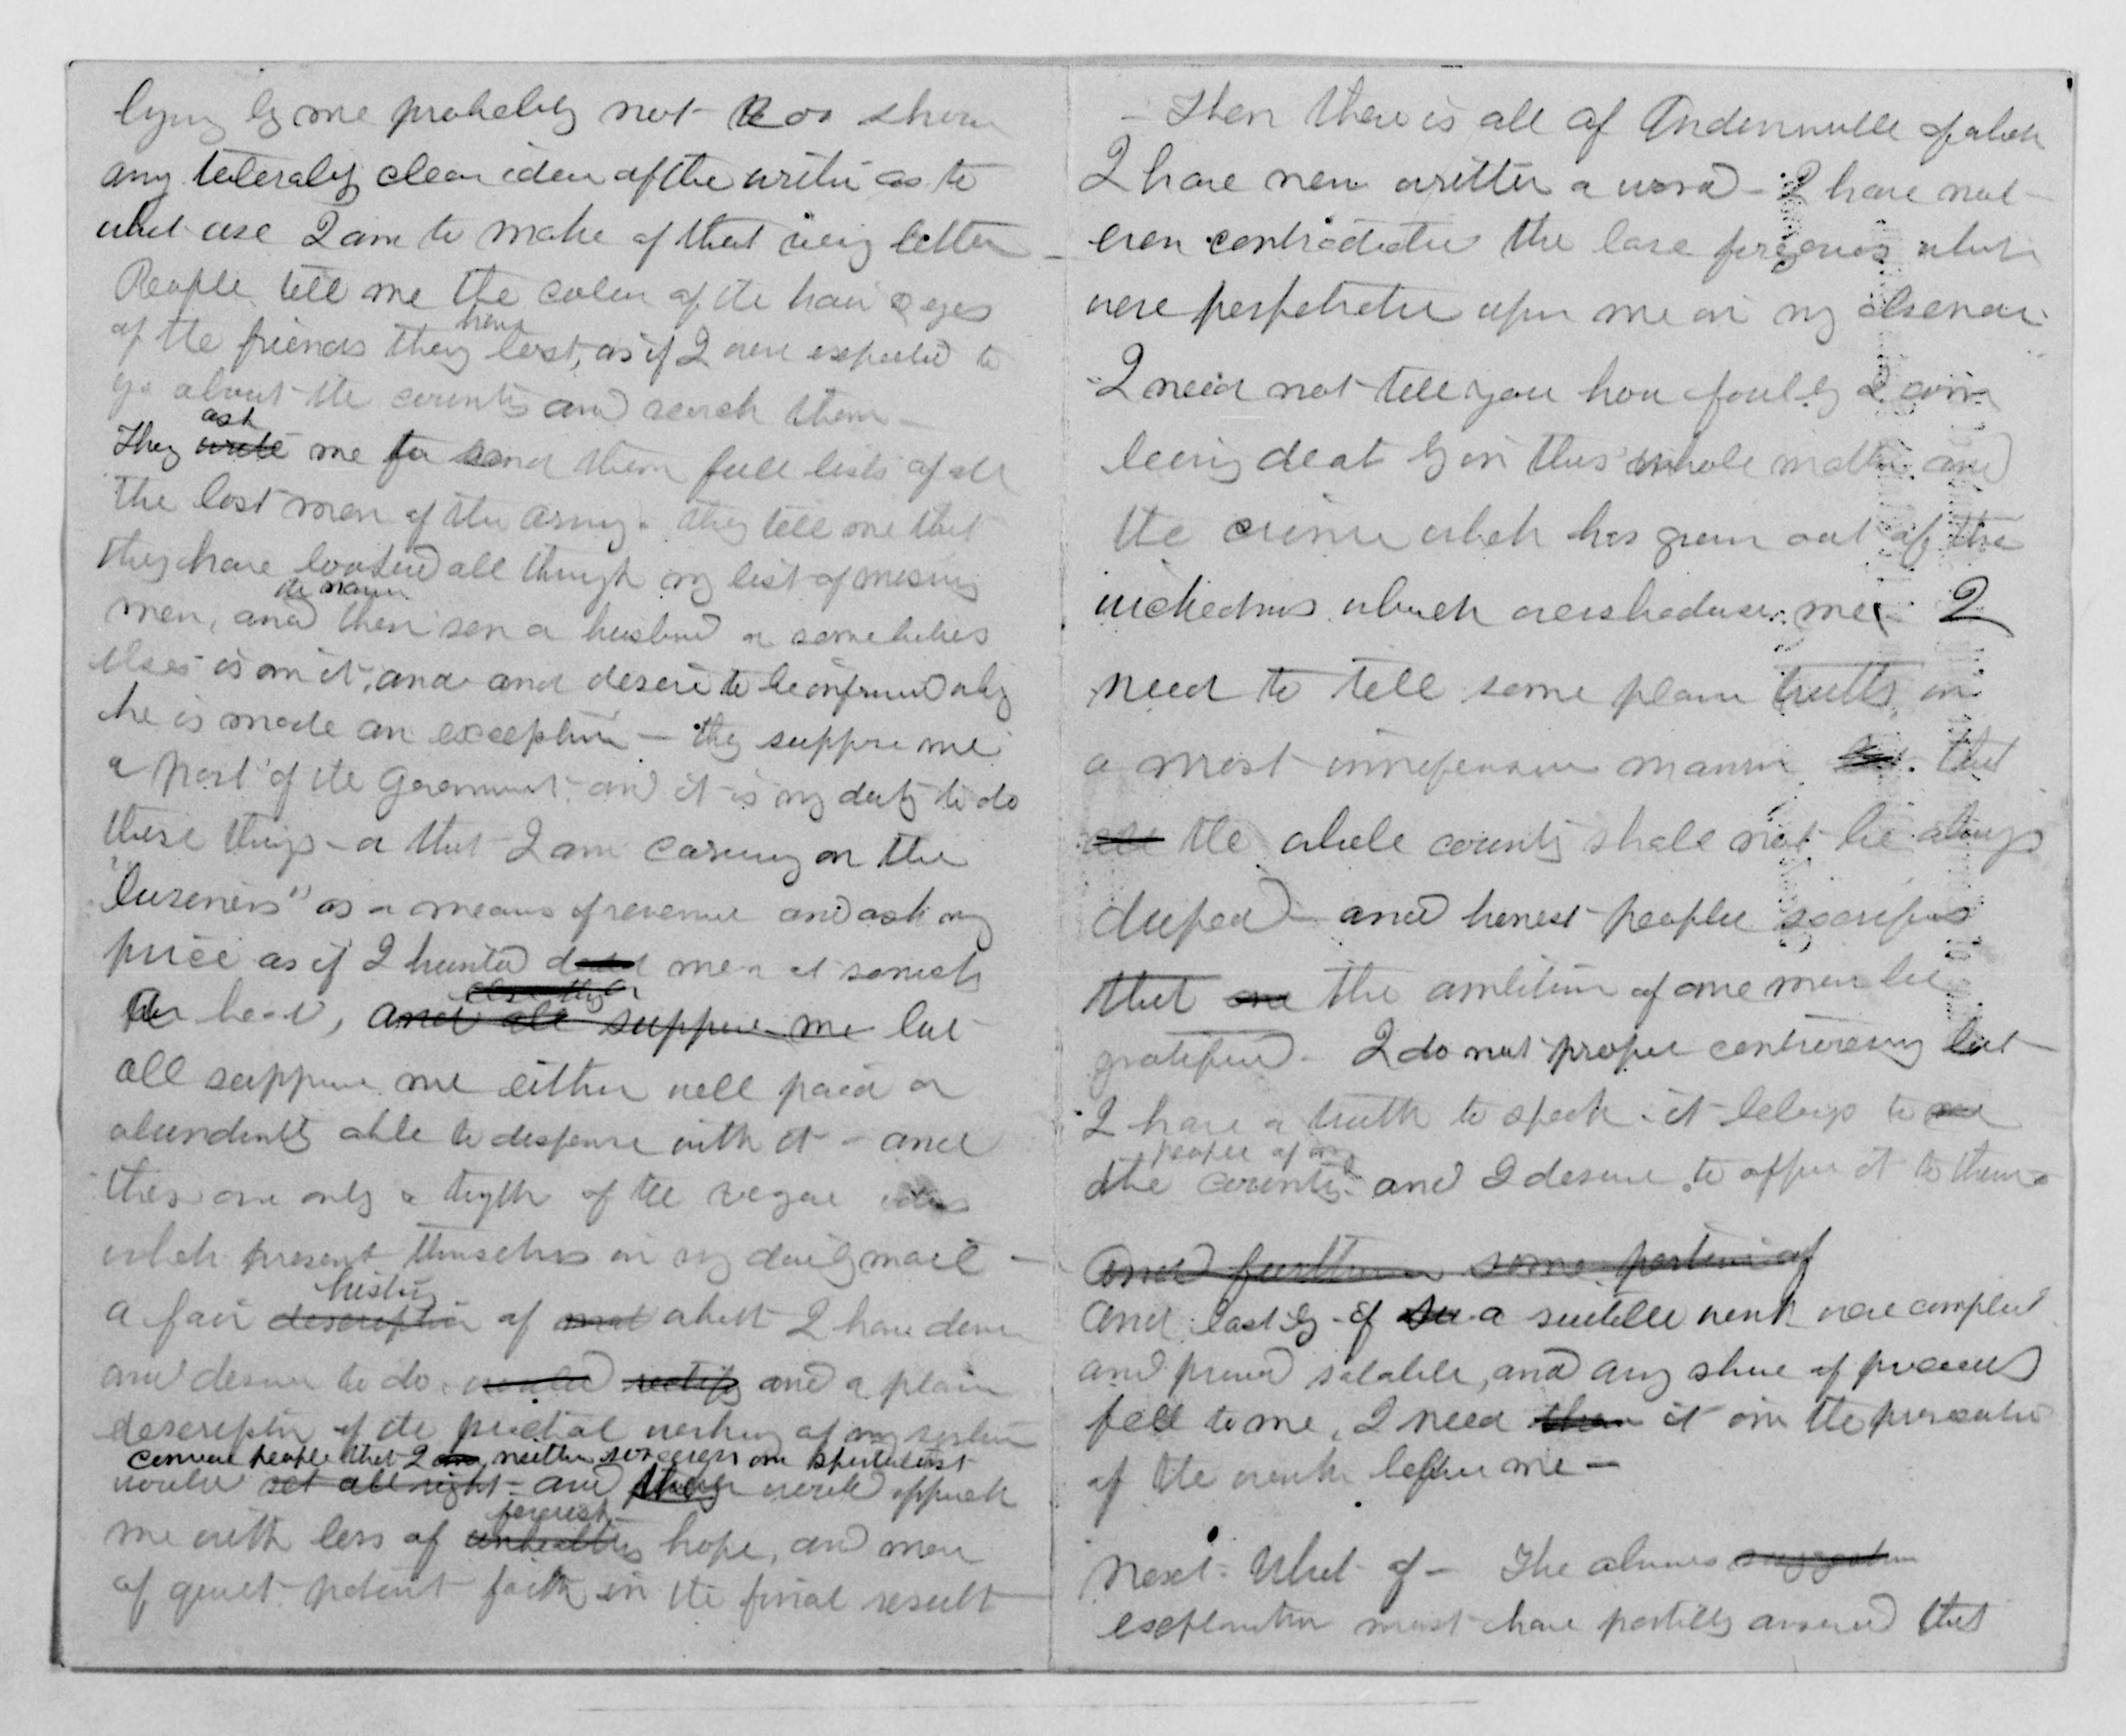 lying by me probably not  shows
any tolerably clear idea of the writer as to
what use I am to make of that very letter
People tell me the color of the hair & eyes
of the friends they have lost, as if I were expected to
go about the country and search them -
They write ask me to send them full lists of all
the lost men of the army. they tell me that
they have looked all through my list of missing
men, and the name their son or husband or somebodies
elses is on it, and and desire to be informed why
he is made an exception - they suppose me
a part of the Government and it is my duty to do
these things - or that I am carrying on the
"business" as a means of revenue and ask my
price as if I hunted dead men at so much
per head, and all suppose me but
all suppose me either well paid or
abundently able to dispense with it - and
these are only a tiyth of the vague ideas
which present themselves in my daily mail -
a fair description history of what I have done
and desire to do, would rectify and a plain
description of the practical working of my system
convince people that I am neither sorceress or spiritualist
would set all right - and they would approach
me with less of unhealthy feverish hope, and more
of quiet patient faith in the final result
- Then there is all of Andersonville of which
I have never written a word - I have not
even contradicted the base forgeries which
were perpetrated upon me in my absence
I need not tell you how foully I am
being dealt by in this whole matter and
the crime which has grown out of the
wickedness which overshadows me. I
need to tell some plain truths in
a most inoffensive manner that
all the whole country shall not be always
duped and honest people sacrificed
that the ambition of one man be
gratified - I do not propose controversy but
I have a truth to speak. it belongs to
the people of my country and I desire to offer it to them -
And further some portion of
And lastly - if a suitable work were completed
and proved salable, and any share of proceeds
fell to me, I need it in the prosecution
of the work before me -
Next - What of - The above suggestion
explanation must have partially answered that